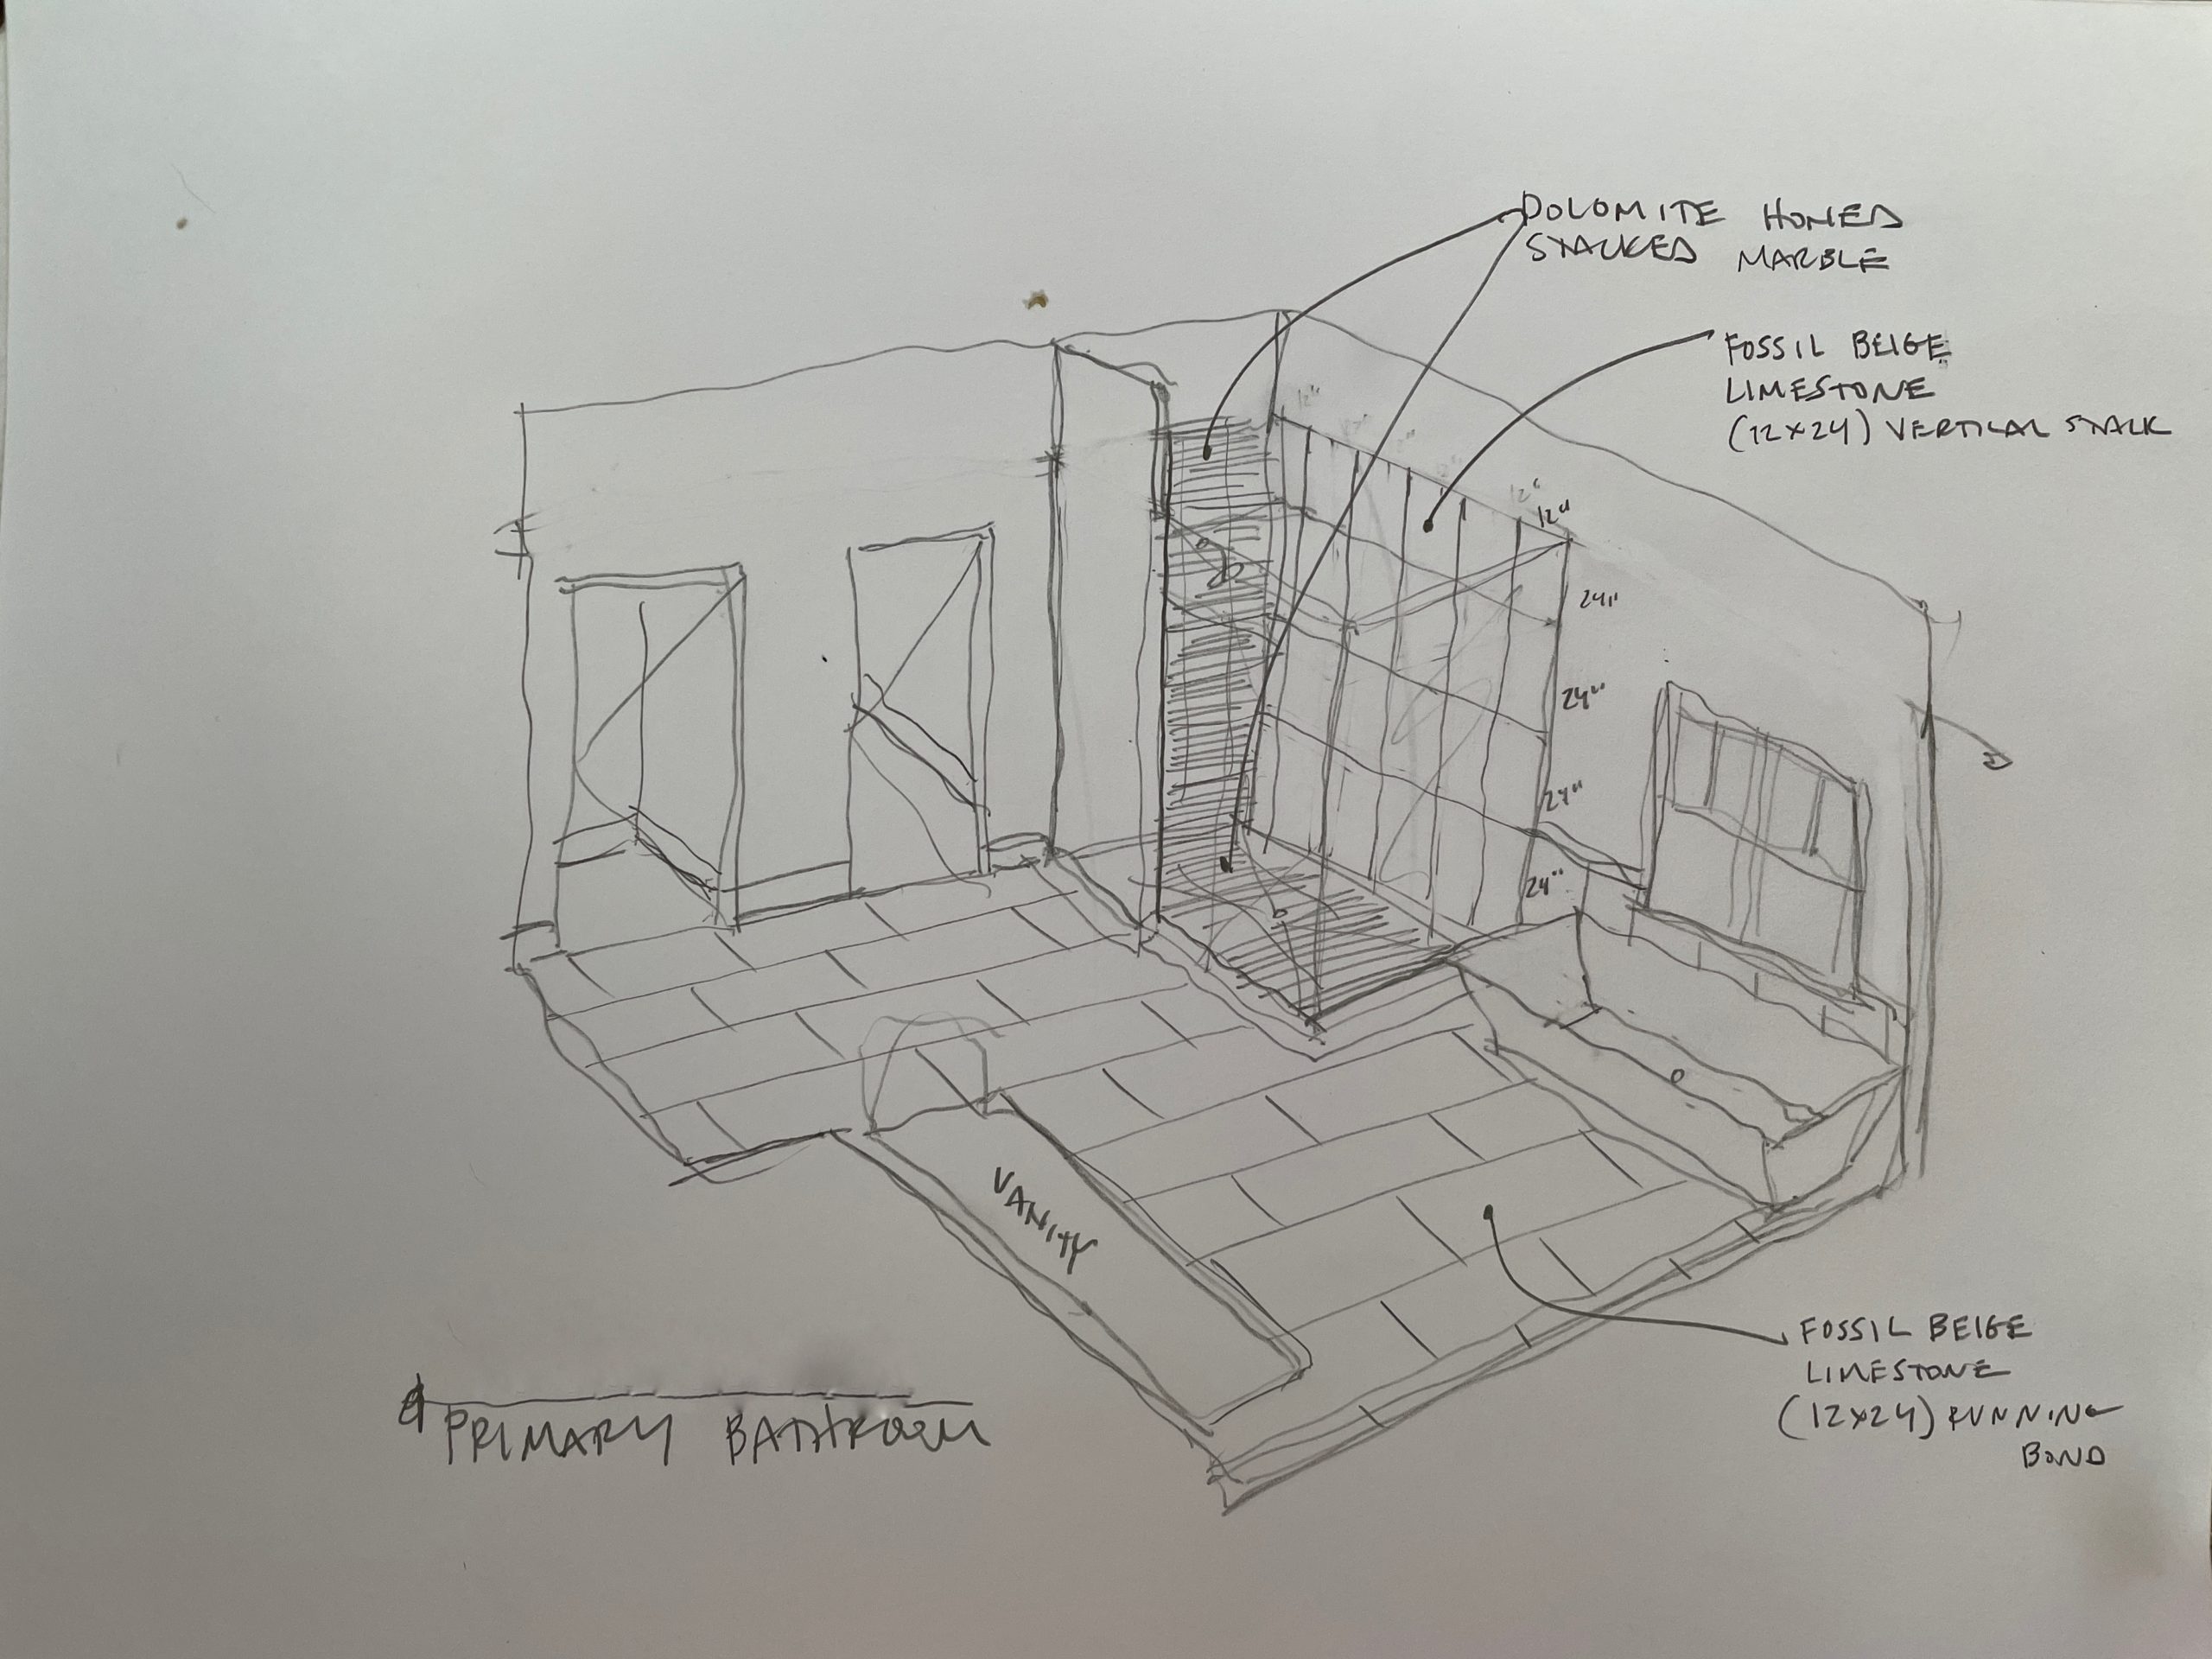 DOLOMITE HONED
STACKED MARBLE
FOSSIL BEIGE
LIMESTONE
(12x24) VERTICAL STACK
12"
12"
12"
24"
24"
24"
24"
VANITY
FOSSIL BEIGE
LIMESTONE
(12x24) RUNNING
BOND
PRIMARY BATHROOM